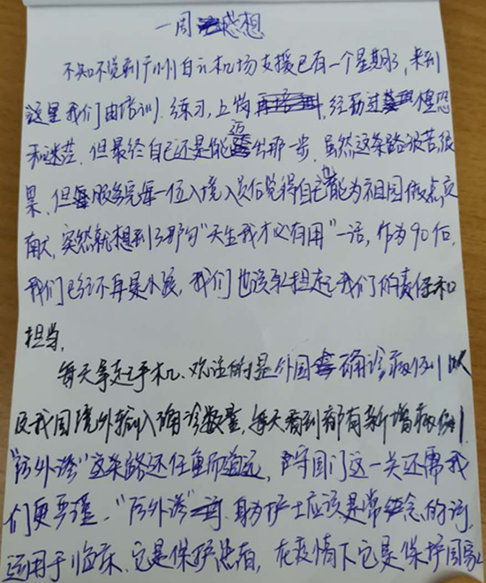 一周感想
不知不觉到广州白云机场支援已有一个星期了,来到
这里我们由培训、练习,上岗,经历过惶恐
和迷茫,但最终自己还是能迈出那一步,虽然这条路很苦很
累,但每服务完每一位入境人员后觉得自己能为祖国做点贡
献,突然就想到了那句“天生我才必有用”一话,作为90后,
我们已经不再是小孩,我们也该承担起我们的责任和
担当。
每天拿起手机、关注的是外国确诊病例以
及我国境外输入确诊数量,每天看到都有新增病例,
“防外渗”这条路还任重而道远,严守国门这一关还需我
们更严谨。“防外渗”身为护士应该是常念的词,
运用于临床,它是保护患者,在疫情下它是保护国家